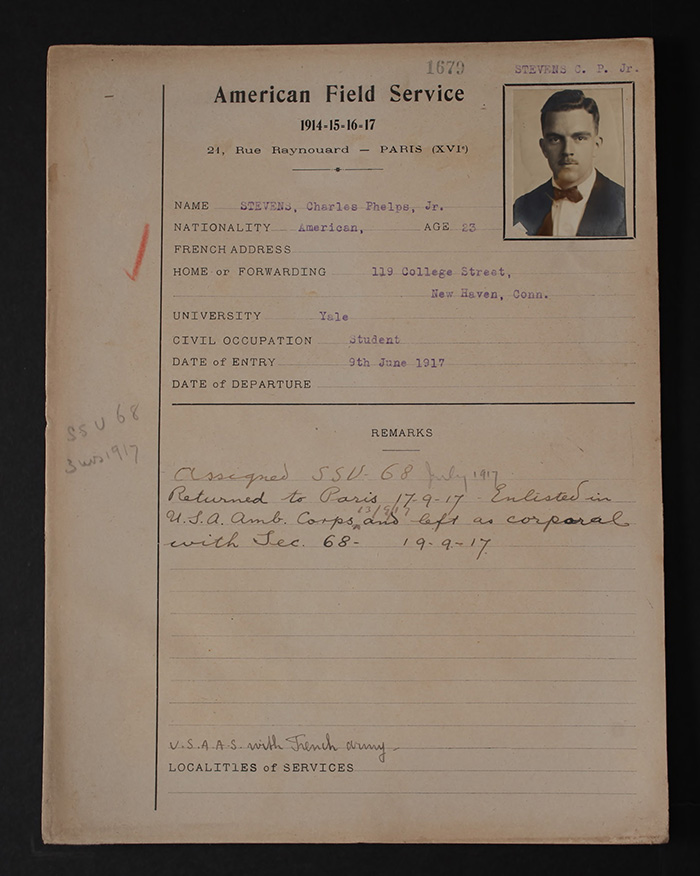 1679 STEVENS C. P. Jr.
American Field Service
1914-15-16-17
21, Rue Raynouard — PARIS (XVIe)
NAME STEVENS, Charles Phelps, Jr.
NATIONALITY American, AGE 23
FRENCH ADDRESS
HOME or FORWARDING 119 College Street,
New Haven, Conn.
UNIVERSITY Yale
CIVIL OCCUPATION Student
DATE of ENTRY 9th June 1917
DATE of DEPARTURE
SSU 68
1917
REMARKS
Assigned SSU- 68 July 1917
Returned to Paris 17-9-17 Enlisted in
U.S.A. Amb. Corps, and left as corporal
with Sec. 68- 19-9-17
U.S.A.A.S. with French army-
LOCALITIES of SERVICES